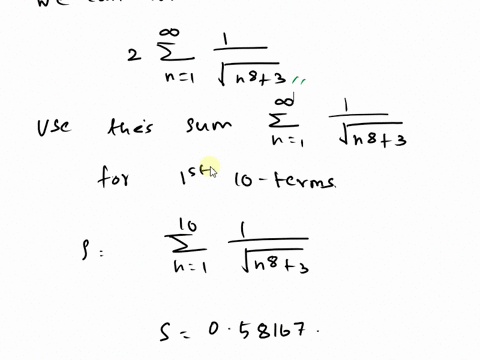 we can
2 ∞ Σ n=1 1/√(n8+3) ,,
Use this sum ∞ Σ n=1 1/√(n8+3)
for 1st 10-terms.
S: 10 Σ n=1 1/√(n8+3)
S = 0.58167.